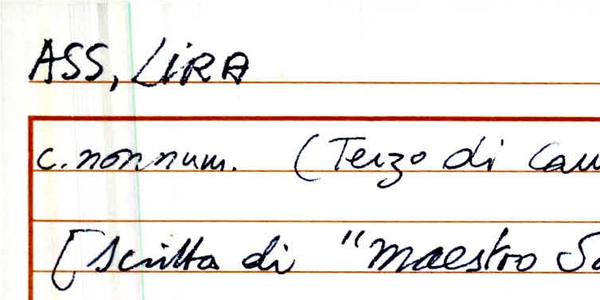 ASS, LIRA
c. non num. (Terzo di
[Scritta di "Maestro